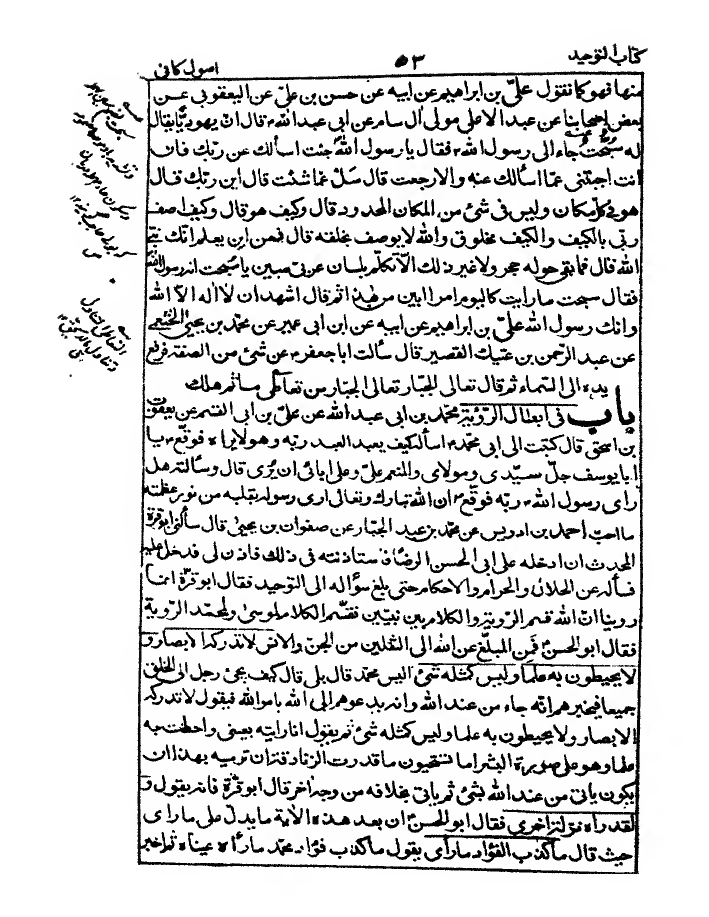 كتاب التوحيد
٥٣
اصول كافى
منها فهو كما نقول علىّ بن ابراهيم عن ابيه عن حسن بن علىّ عن اليعقوبى عن
بعض اصحابنا عن عبد الاعلى مولى آل سام عن ابى عبد الله ع قال انّ يهوديّا يقال
له سبحت جاء الى رسول الله ص فقال يا رسول الله جئت اسالك عن ربّك فان
انت اجبتنى عمّا اسالك عنه والا رجعت قال سَل عمّا شئت قال اين ربّك قال
هو فى كلّ مكان وليس فى شئ من المكان المحدود قال وكيف هو قال وكيف اصف
ربّى بالكيف والكيف مخلوق والله لا يوصف بخلقه قال فمن اين يعلم انّك نبىّ
الله قال فما بقى حوله حجر ولا غير ذلك الّا تكلّم بلسان عربىّ مبين يا سبحت انه رسول الله
فقال سبحت ما رايت كاليوم امرا ابين من هذا ثم قال اشهد ان لا اله الّا الله
وانّك رسول الله علىّ بن ابراهيم عن ابيه عن ابن ابى عمير عن محمّد بن يحيى الخثعمى
عن عبد الرّحمن بن عتيك القصير قال سالت ابا جعفر ع عن شئ من الصفة فرفع
يده الى السّماء ثم قال تعالى الجبّار تعالى الجبّار من تعاطى ما ثم هلك
باب فى ابطال الرّؤية محمّد بن ابى عبد الله عن علىّ بن ابى القسم عن يعقوب
بن اسحق قال كتبت الى ابى محمّد ع اساله كيف يعبد العبد ربّه وهو لا يراه فوقّع ع يا
ابا يوسف جلّ سيّدى ومولاى والمنعم علىّ وعلى ابائى ان يُرى قال وسالته هل
راى رسول الله ص ربّه فوقّع ع ان الله تبارك وتعالى ارى رسوله بقلبه من نور عظمته
ما احبّ احمد بن ادريس عن محمّد بن عبد الجبّار عن صفوان بن يحيى قال سألنى ابو قرّة
المحدث ان ادخله على ابى الحسن الرضا ع فاستاذنته فى ذلك فاذن لى فدخل عليه
فساله عن الحلال والحرام والاحكام حتى بلغ سؤاله الى التوحيد فقال ابو قرّة انّا
روينا انّ الله قسم الرّوية والكلام بين نبيّين فقسّم الكلام لموسى ولمحمّد الرّوية
فقال ابو الحسن ع فمن المبلّغ عن الله الى الثقلين من الجنّ والانس لا تدركه الابصار و
لا يحيطون به علما وليس كمثله شئ اليس محمّد قال بلى قال كيف يجئ رجل الى الخلق
جميعا فيخبرهم انّه جاء من عند الله وانه يدعوهم الى الله بامر الله فيقول لا تدركه
الابصار ولا يحيطون به علما وليس كمثله شئ ثم يقول انا رايته بعينى واحطت به
علما وهو على صورة البشر اما تستحيون ما قدرت الزنادقة ان ترميه بهذا ان
يكون ياتى من عند الله بشئ ثم ياتى بخلافه من وجه اخر قال ابو قرّة فانه يقول و
لقد راه نزلة اخرى فقال ابو الحسن ع ان بعد هذه الاية ما يدلّ على ما راى
حيث قال ما كذب الفؤاد ما راى يقول ما كذب فؤاد محمّد ما رأت عيناه ثم اخبر